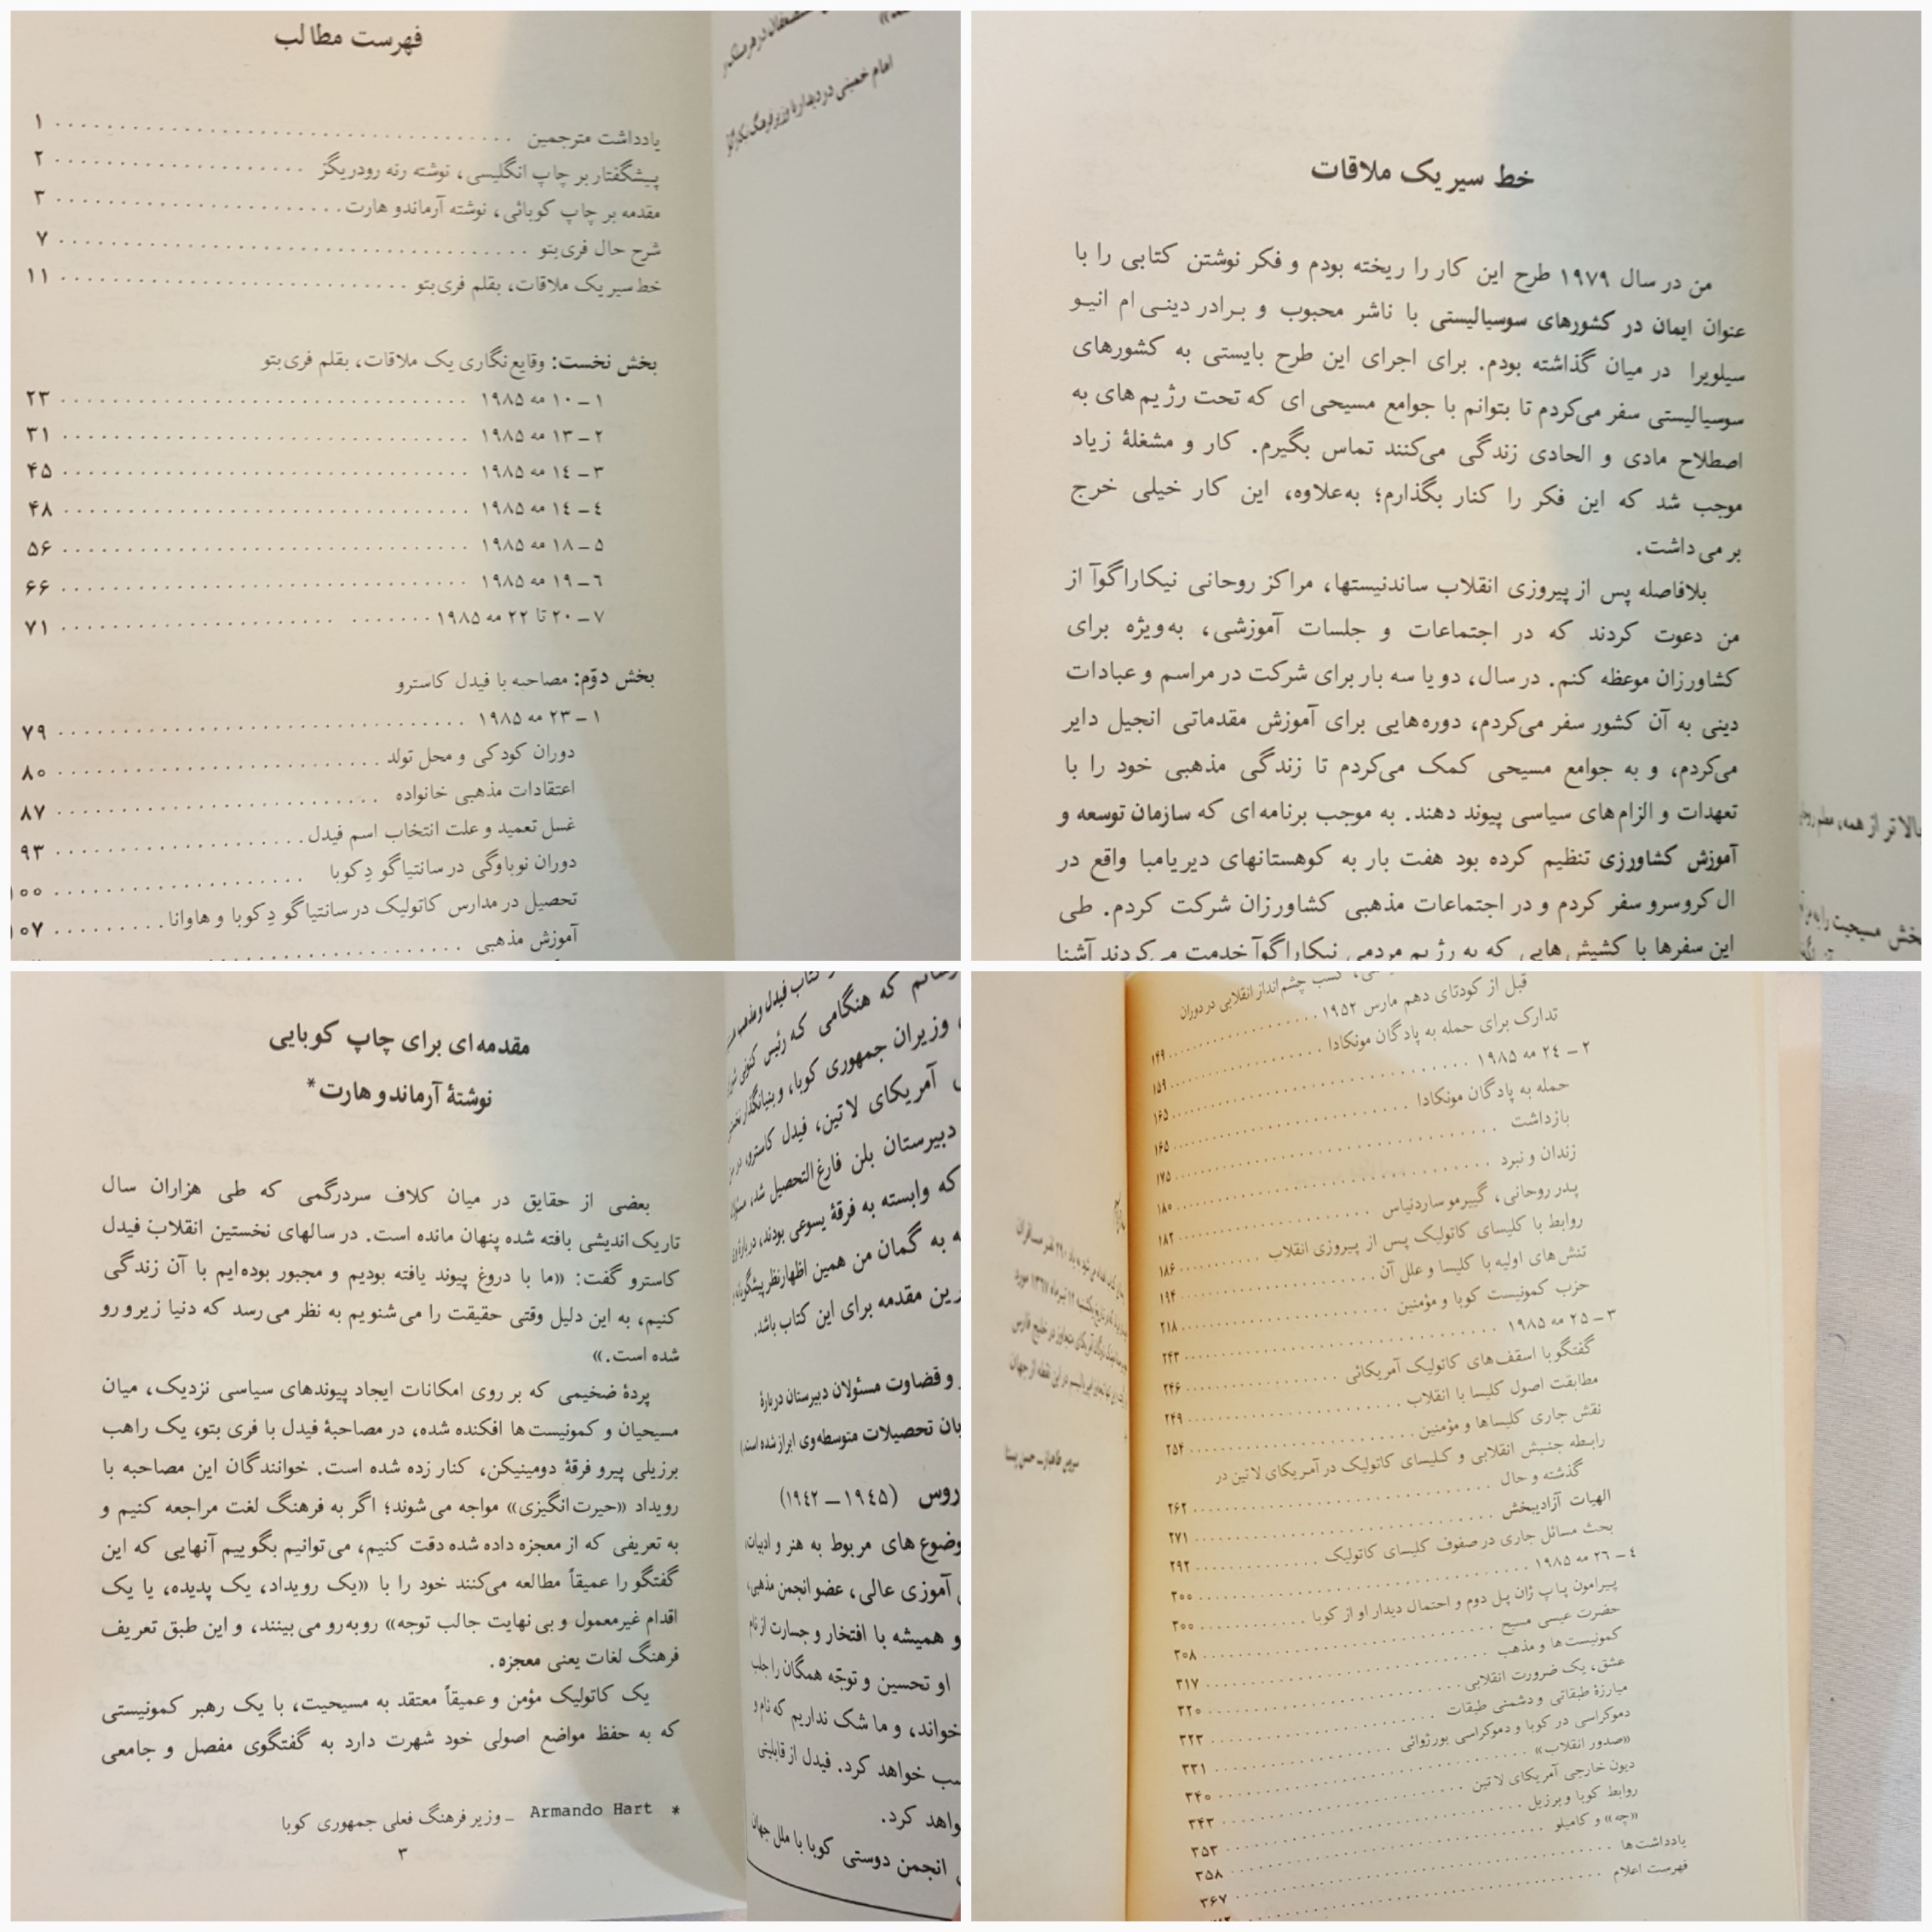 فهرست مطالب
یادداشت مترجمین ۱
پیشگفتار بر چاپ انگلیسی، نوشته رنه رودریگز ۲
مقدمه بر چاپ کوبائی، نوشته آرماندو هارت ۳
شرح حال فری‌بتو ۷
خط‌سیر یک ملاقات، بقلم فری‌بتو ۱۱
بخش نخست: وقایع‌نگاری یک ملاقات، بقلم فری‌بتو
۱ــ ۱۰ مه ۱۹۸۵ ۲۳
۲ــ ۱۳ مه ۱۹۸۵ ۳۱
۳ــ ۱٤ مه ۱۹۸۵ ۴۵
٤ــ ۱٤ مه ۱۹۸۵ ۴۸
۵ــ ۱۸ مه ۱۹۸۵ ۵۶
٦ــ ۱۹ مه ۱۹۸۵ ۶۶
۷ــ ۲۰ تا ۲۲ مه ۱۹۸۵ ۷۱
بخش دوّم: مصاحبه با فیدل کاسترو
۱ــ ۲۳ مه ۱۹۸۵ ۷۹
دوران کودکی و محل تولد ۸۰
اعتقادات مذهبی خانواده ۸۷
غسل تعمید و علت انتخاب اسم فیدل ۹۳
دوران نوباوگی در سانتیاگو دِ کوبا ۱۰۰
تحصیل در مدارس کاتولیک در سانتیاگو دِ کوبا و هاوانا ۱۰۷
آموزش مذهبی
امام خمینی در دیدار با وزیر فرهنگ نیکاراگوآ
خط سیر یک ملاقات
من در سال ۱۹۷۹ طرح این کار را ریخته بودم و فکر نوشتن کتابی را با
عنوان ایمان در کشورهای سوسیالیستی با ناشر محبوب و برادر دینی‌ام انیو
سیلویرا در میان گذاشته بودم. برای اجرای این طرح بایستی به کشورهای
سوسیالیستی سفر می‌کردم تا بتوانم با جوامع مسیحی‌ای که تحت رژیم‌های به
اصطلاح مادی و الحادی زندگی می‌کنند تماس بگیرم. کار و مشغلهٔ زیاد
موجب شد که این فکر را کنار بگذارم؛ به‌علاوه، این کار خیلی خرج
برمی‌داشت.
بلافاصله پس از پیروزی انقلاب ساندنیستها، مراکز روحانی نیکاراگوآ از
من دعوت کردند که در اجتماعات و جلسات آموزشی، به‌ویژه برای
کشاورزان موعظه کنم. در سال، دو یا سه بار برای شرکت در مراسم و عبادات
دینی به آن کشور سفر می‌کردم، دوره‌هایی برای آموزش مقدماتی انجیل دایر
می‌کردم، و به جوامع مسیحی کمک می‌کردم تا زندگی مذهبی خود را با
تعهدات و الزام‌های سیاسی پیوند دهند. به موجب برنامه‌ای که سازمان توسعه و
آموزش کشاورزی تنظیم کرده بود هفت بار به کوهستانهای دیریامبا واقع در
ال کروسرو سفر کردم و در اجتماعات مذهبی کشاورزان شرکت کردم. طی
این سفرها با کشیش‌هایی که به رژیم مردمی نیکاراگوآ خدمت می‌کردند آشنا
بالاتر از همه،
مقدمه‌ای برای چاپ کوبایی
نوشتهٔ آرماندو هارت*
بعضی از حقایق در میان کلاف سردرگمی که طی هزاران سال
تاریک‌اندیشی بافته شده پنهان مانده است. در سالهای نخستین انقلاب فیدل
کاسترو گفت: «ما با دروغ پیوند یافته بودیم و مجبور بوده‌ایم با آن زندگی
کنیم، به این دلیل وقتی حقیقت را می‌شنویم به نظر می‌رسد که دنیا زیر و رو
شده است.»
پردهٔ ضخیمی که بر روی امکانات ایجاد پیوندهای سیاسی نزدیک، میان
مسیحیان و کمونیست‌ها افکنده شده، در مصاحبهٔ فیدل با فری بتو، یک راهب
برزیلی پیرو فرقهٔ دومینیکن، کنار زده شده است. خوانندگان این مصاحبه با
رویداد «حیرت‌انگیزی» مواجه می‌شوند؛ اگر به فرهنگ لغت مراجعه کنیم و
به تعریفی که از معجزه داده شده دقت کنیم، می‌توانیم بگوییم آنهایی که این
گفتگو را عمیقاً مطالعه می‌کنند خود را با «یک رویداد، یک پدیده، یا یک
اقدام غیرمعمول و بی‌نهایت جالب توجه» روبه‌رو می‌بینند، و این طبق تعریف
فرهنگ لغات یعنی معجزه.
یک کاتولیک مؤمن و عمیقاً معتقد به مسیحیت، با یک رهبر کمونیستی
که به حفظ مواضع اصولی خود شهرت دارد به گفتگوی مفصل و جامعی
* Armando Hart ــ وزیر فرهنگ فعلی جمهوری کوبا
۳
کتاب فیدل و مذهب
که هنگامی که رئیس کنونی
وزیران جمهوری کوبا، و بنیانگذار
آمریکای لاتین، فیدل کاسترو،
دبیرستان بلن فارغ‌التحصیل شد،
که وابسته به فرقهٔ یسوعی بودند،
به گمان من همین اظهارنظر
ین مقدمه برای این کتاب باشد.
و قضاوت مسئولان دبیرستان دربارهٔ
تحصیلات متوسطه وی ابراز شده است.)
(۱۹٤۲ــ۱۹٤۵)
های مربوط به هنر و ادبیات،
آموزی عالی، عضو انجمن مذهبی،
و همیشه با افتخار و جسارت از نام
او تحسین و توجّه همگان را جلب
خواند، و ما شک نداریم که نام و
خواهد کرد. فیدل از قابلیتی
کرد.
انجمن دوستی کوبا با ملل جهان
کسب چشم‌انداز انقلابی در دوران
قبل از کودتای دهم مارس ۱۹۵۲ ۱۴۹
تدارک برای حمله به پادگان مونکادا ۱۵۹
۲ــ ۲٤ مه ۱۹۸۵ ۱۶۵
حمله به پادگان مونکادا ۱۶۵
بازداشت ۱۷۵
زندان و نبرد ۱۸۰
پدر روحانی، گییرمو ساردنیاس ۱۸۲
روابط با کلیسای کاتولیک پس از پیروزی انقلاب ۱۸۶
تنش‌های اولیه با کلیسا و علل آن ۱۹۴
حزب کمونیست کوبا و مؤمنین ۲۱۸
۳ــ ۲۵ مه ۱۹۸۵ ۲۴۳
گفتگو با اسقف‌های کاتولیک آمریکائی ۲۴۶
مطابقت اصول کلیسا با انقلاب ۲۴۹
نقش جاری کلیساها و مؤمنین ۲۵۴
رابطه جنبش انقلابی و کلیسای کاتولیک در آمریکای لاتین در
گذشته و حال ۲۶۲
الهیات آزادیبخش ۲۷۱
بحث مسائل جاری در صفوف کلیسای کاتولیک ۲۹۲
٤ــ ۲٦ مه ۱۹۸۵ ۳۰۰
پیرامون پاپ ژان پل دوم و احتمال دیدار او از کوبا ۳۰۰
حضرت عیسی مسیح ۳۰۸
کمونیست‌ها و مذهب ۳۱۷
عشق، یک ضرورت انقلابی ۳۲۰
مبارزهٔ طبقاتی و دشمنی طبقات ۳۲۳
دموکراسی در کوبا و دموکراسی بورژوائی ۳۳۱
«صدور انقلاب» ۳۴۰
دیون خارجی آمریکای لاتین ۳۴۳
روابط کوبا و برزیل ۳۵۳
«چه» و کامیلو ۳۵۸
یادداشت‌ها ۳۶۷
فهرست اعلام